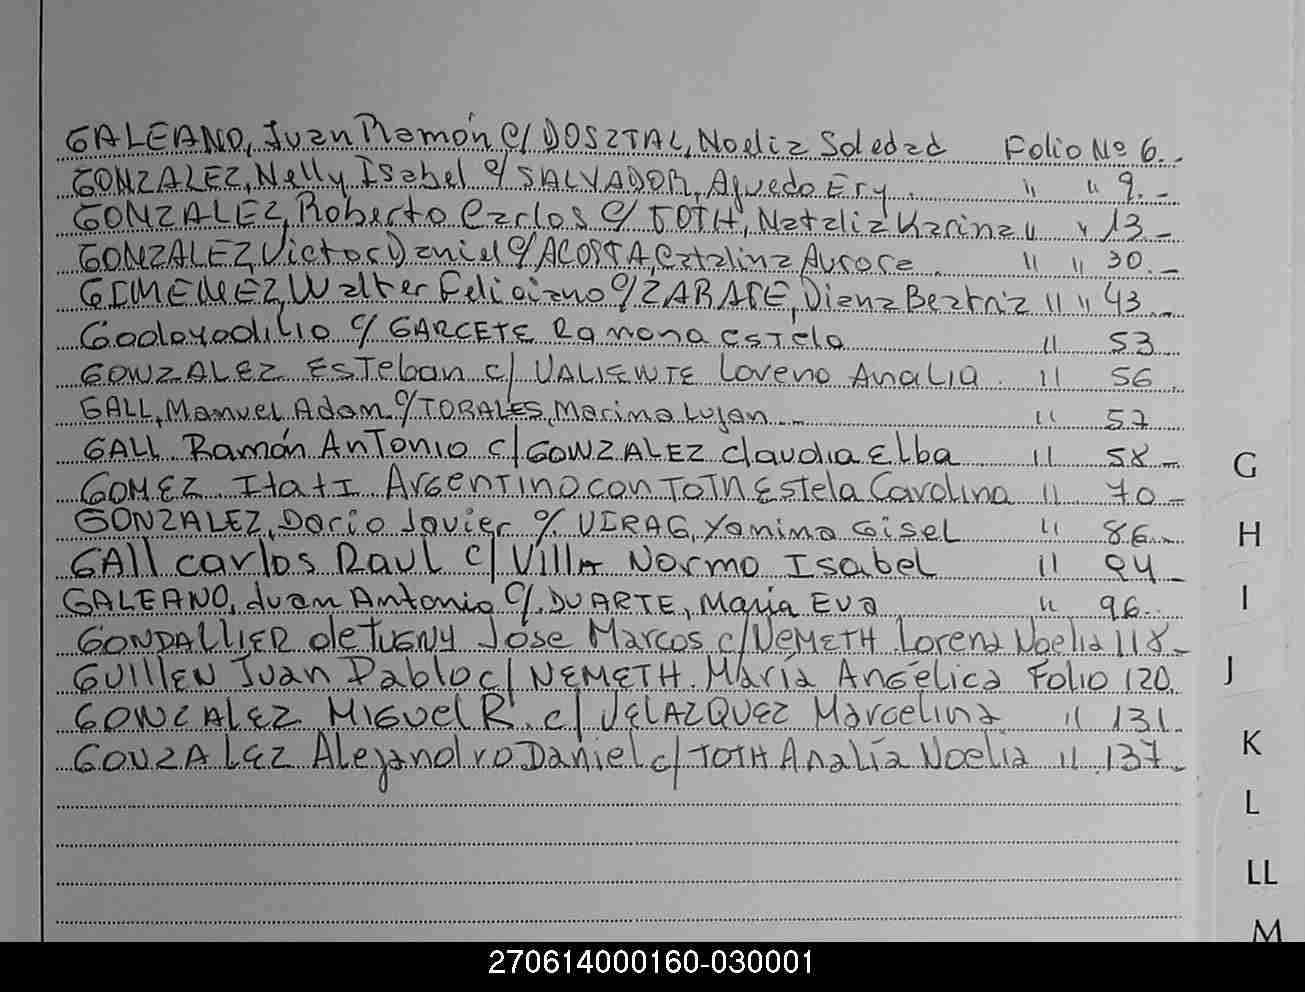 GALEANO, Juan Ramón c/ DOSZTAL, Noelia Soledad Folio Nº 6.-
GONZALEZ, Nelly Isabel c/ SALVADOR, Aguedo Ery. " " 9.-
GONZALEZ, Roberto Carlos c/ TOTH, Natalia Karina " " 13.-
GONZALEZ, Victor Daniel c/ ACOSTA, Catalina Aurora " " 30.-
GIMENEZ, Walter Feliciano c/ ZARATE, Diana Beatriz " " 43.-
Godoy odilio c/ GARCETE Ramona estela " 53
GONZALEZ Esteban c/ VALIENTE Loreno Analia. " 56
GALL, Manuel Adam c/ TORALES, Marina Lujan " 57
GALL Ramón Antonio c/ GONZALEZ claudia Elba " 58-
GOMEZ Itati Argentino con TOTH Estela Carolina " 70-
GONZALEZ, Dario Javier c/ VIRAG, Yanina Gisel " 86.-
GAll carlos Raul c/ Villa Normo Isabel " 94-
GALEANO, Juan Antonio c/. DUARTE, Maria Eva " 96.
GONDALLIER de TUGNY Jose Marcos c/ NEMETH Lorena Noelia 118-
GUIllEN Juan Pablo c/ NEMETH María Angélica Folio 120.
GONZALEZ Miguel R. c/ VELAZQUEZ Marcelina " 131.
GONZALEZ Alejandro Daniel c/ TOTH Analía Noelia " 137-
G
H
I
J
K
L
LL
M
270614000160-030001